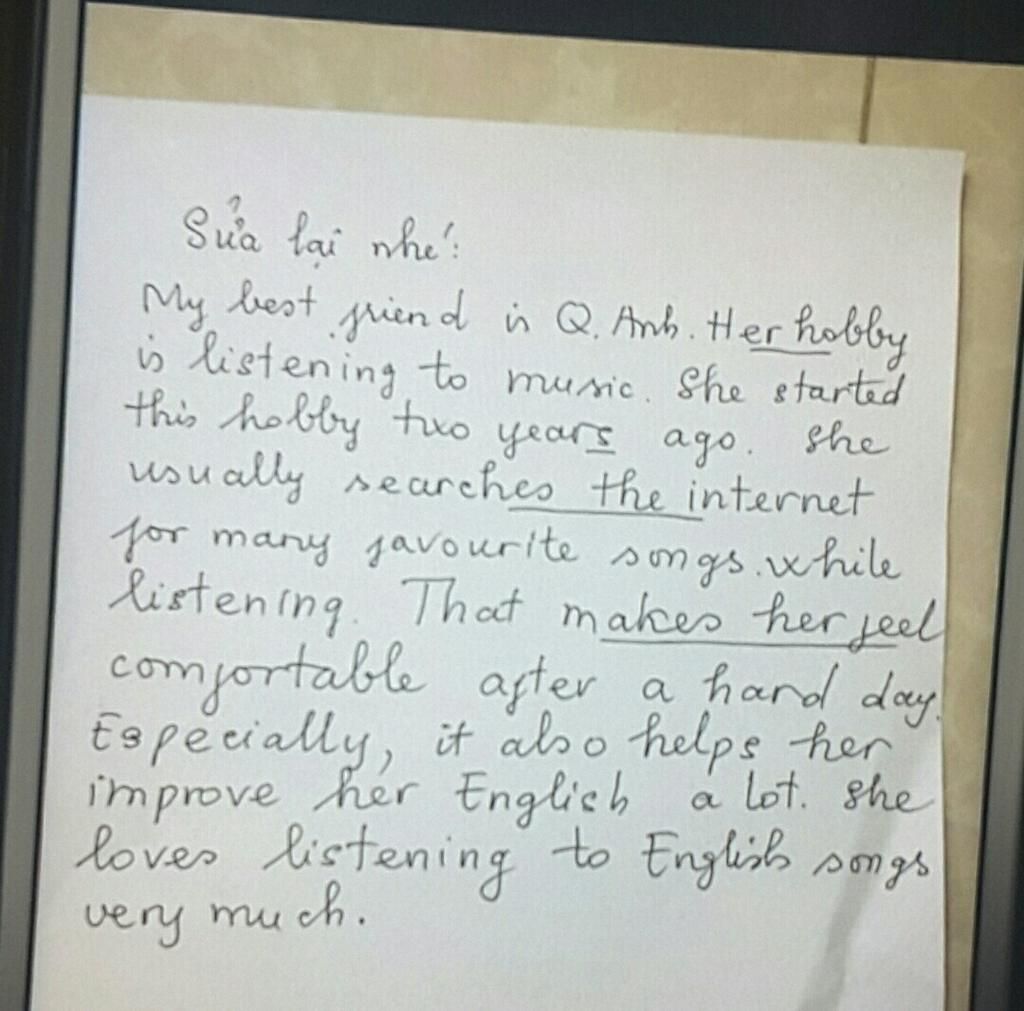 Sửa lại nhé:
My best friend is Q. Anh. Her hobby
is listening to music. She started
this hobby two years ago. She
usually searches the internet
for many favourite songs. while
listening. That makes her feel
comfortable after a hard day.
Especially, it also helps her
improve her English a lot. She
loves listening to English songs
very much.